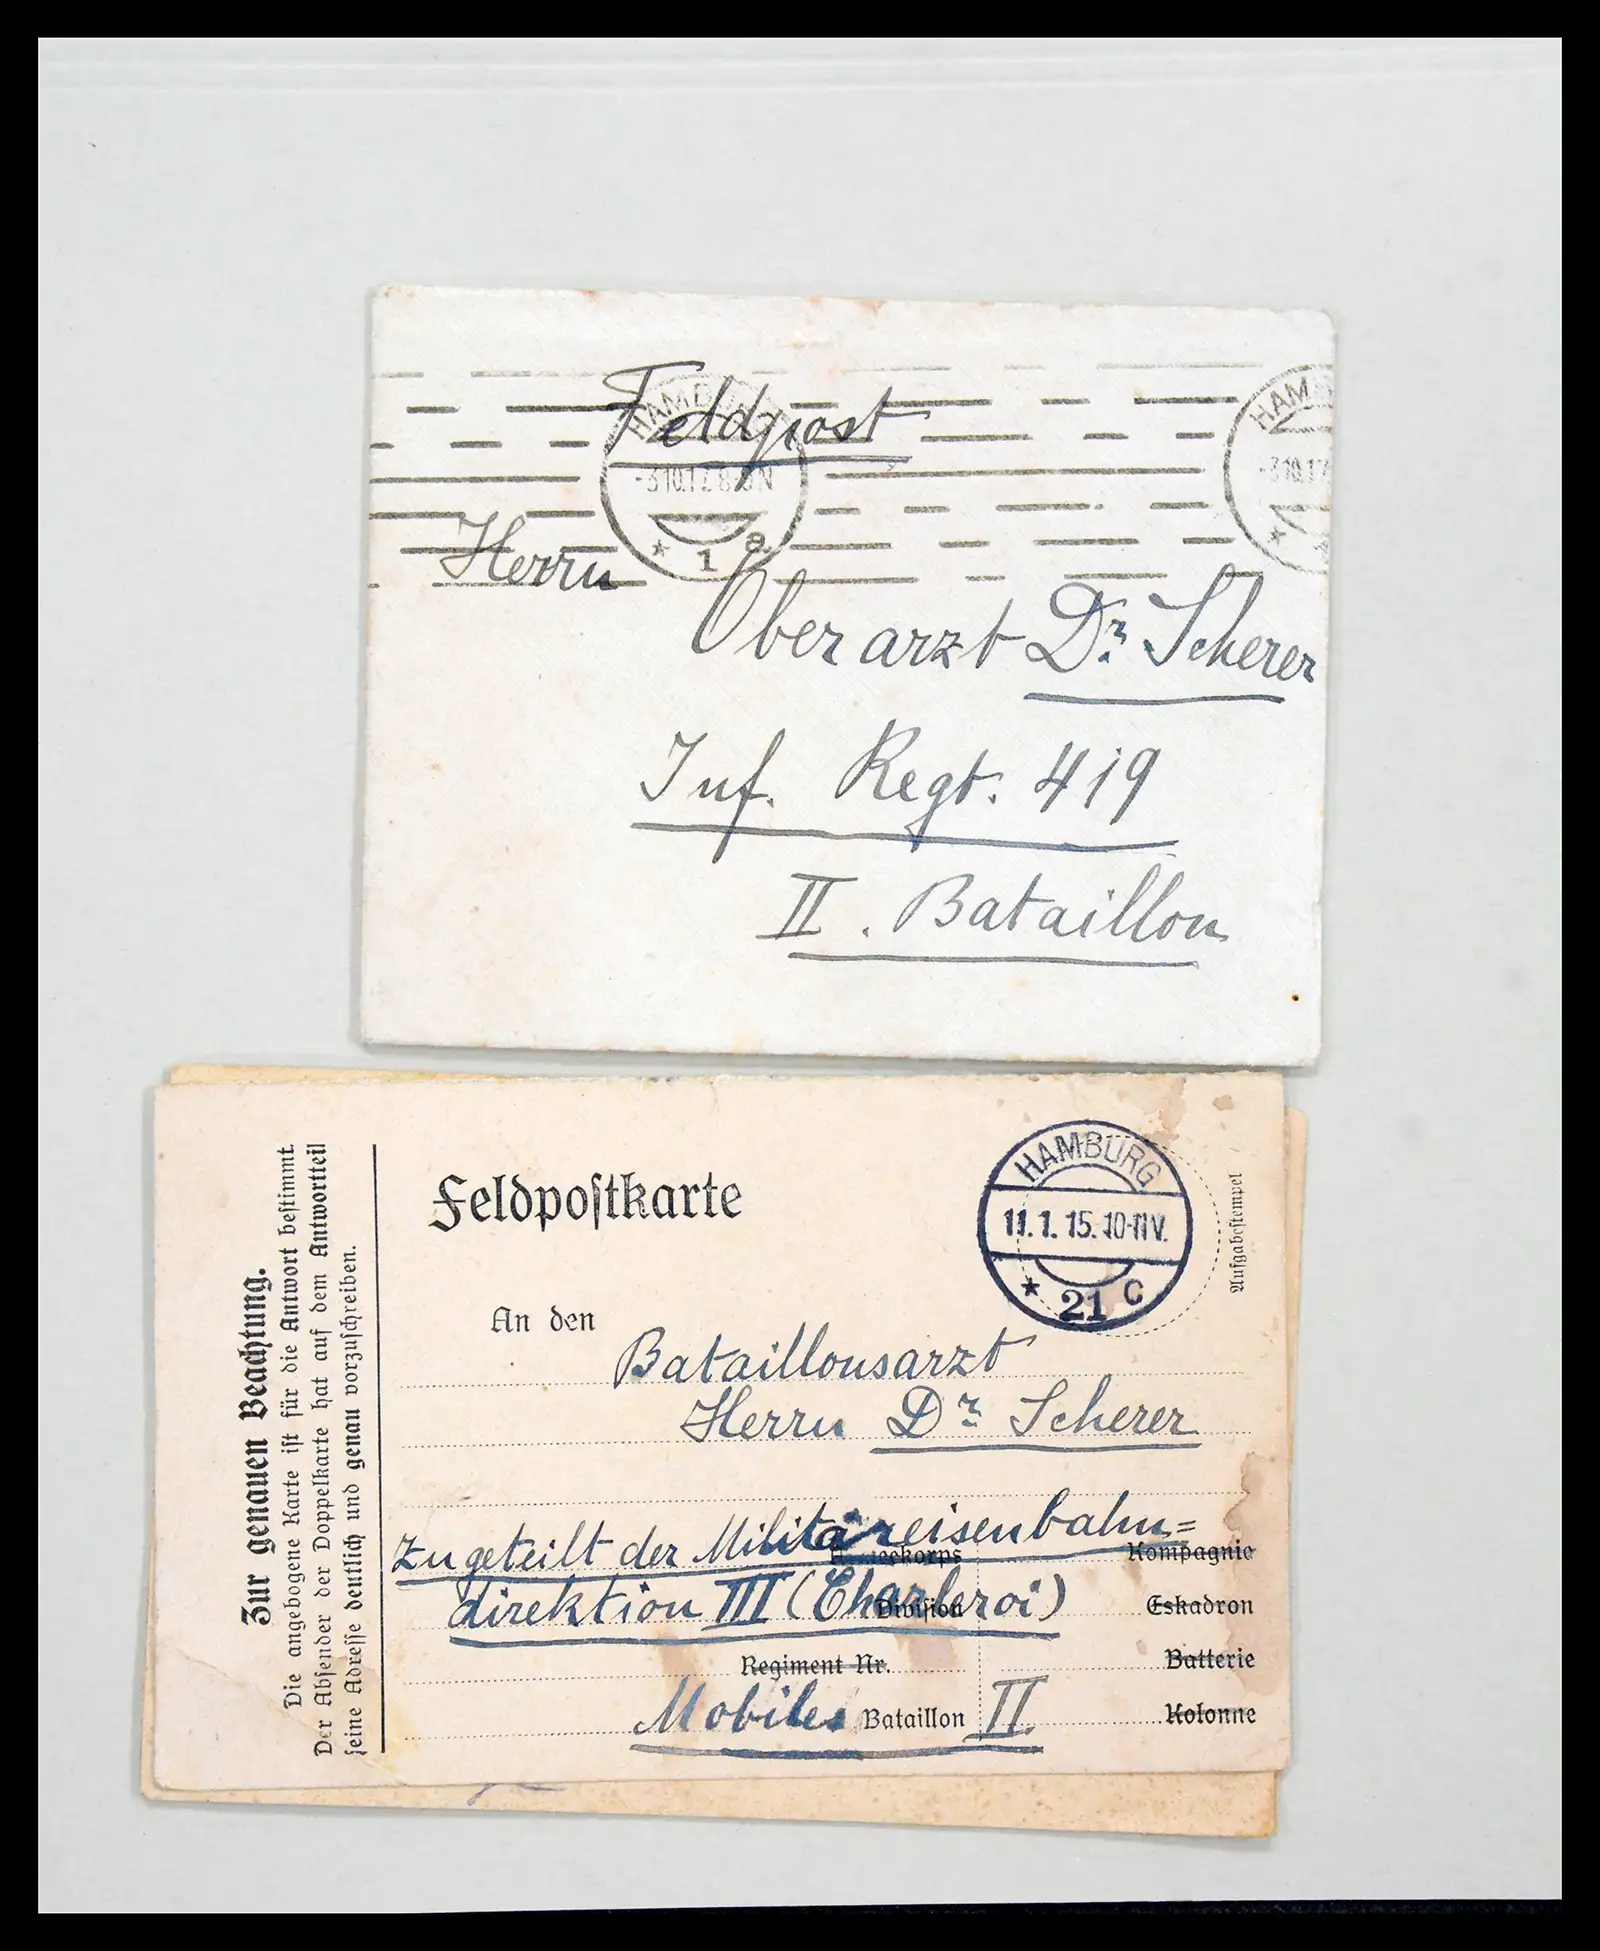 Feldpost
HAMBURG
-3.10.17. 8-9N
* 1 a
HAM
-3.10.17
*
Herrn
Oberarzt Dr. Scherer
Inf. Regt. 419
II. Bataillon
Zur genauen Beachtung.
Die angebogene Karte ist für die Antwort bestimmt.
Der Absender der Doppelkarte hat auf dem Antwortteil
seine Adresse deutlich und genau vorzuschreiben.
Feldpostkarte
HAMBURG
11.1.15.10-11V.
* 21 c
Aufgabestempel
An den
Bataillonsarzt
Herrn Dr. Scherer
zugeteilt der Militäreisenbahn=
Armeekorps Kompagnie
direktion III (Charleroi)
Division Eskadron
Regiment Nr. Batterie
Mobiles Bataillon II Kolonne